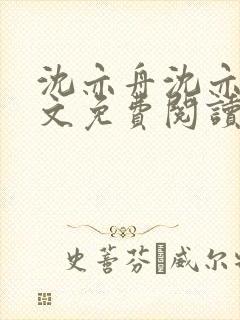 沈亦舟沈亦
文免費閱讀
史蒂芬·威尔